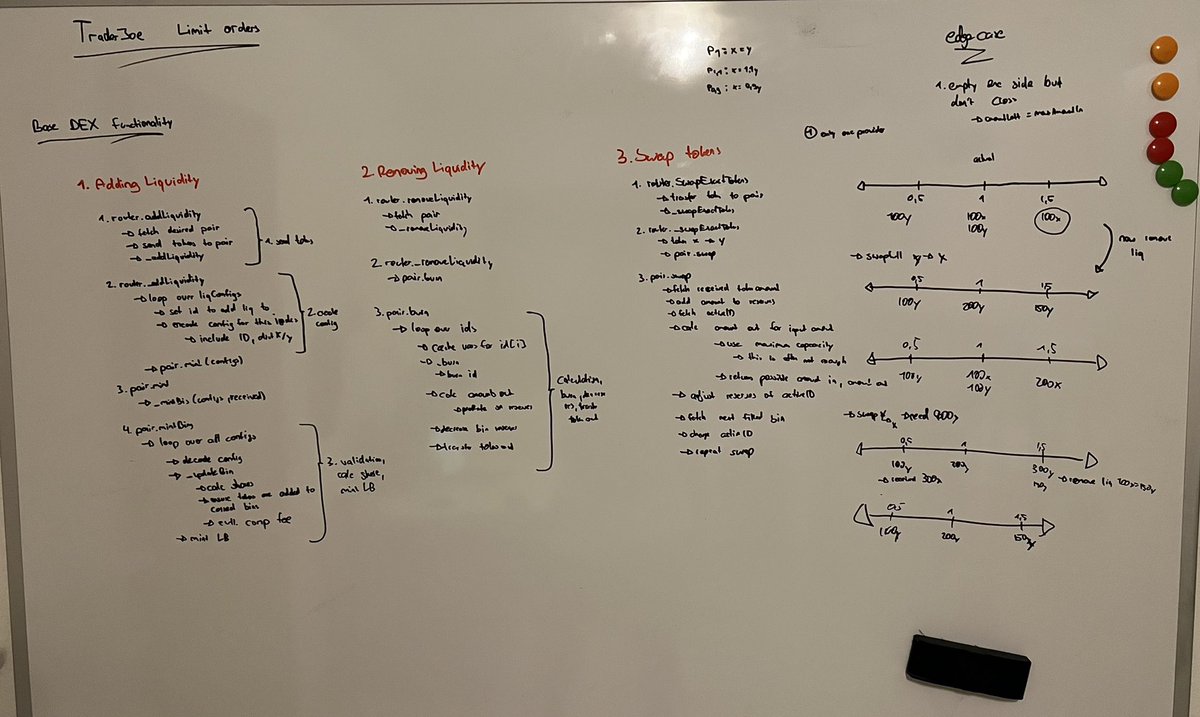 TraderJoe Limit orders
Base DEX Functionality
1. Adding Liquidity
1. router.addLiquidity
→ fetch desired pair
→ send token to pair
→ _addLiquidity
1. send token
2. router._addLiquidity
→ loop over liqConfigs
→ set id to add liq to
→ encode config for this
→ include ID, dist X/Y
→ pair.mint (configs)
2. encode config
3. pair.mint
→ _mintBins (configs, received)
4. pair.mintBins
→ loop over all configs
→ decode config
→ _updateBin
→ calc shares
→ ensure token are added to
correct bin
→ evtl. comp fee
→ mint LB
3. validation,
calc share,
mint LB
2. Removing Liquidity
1. router.removeLiquidity
→ fetch pair
→ _removeLiquidity
2. router._removeLiquidity
→ pair.burn
3. pair.burn
→ loop over ids
→ cache vars for id[i]
→ _burn
→ burn id
→ calc amounts out
→ decrease bin reserves
→ transfer token out
calculation,
burn, decrease
res, transfer
token out
3. Swap tokens
1. router.SwapExactTokens
→ transfer token to pair
→ _swapExactTokens
2. router._swapExactTokens
→ token x → y
→ pair.swap
3. pair.swap
→ fetch received token amount
→ add amount to reserves
→ fetch activeID
→ calc amount out for input amount
→ use maximum capacity
→ this is often not enough
→ return possible amount in, amount out
→ adjust reserves of activeID
→ fetch next filled bin
→ change activeID
→ repeat swap
P1 : x = y
edge case
1. empty one side but
don't cross
→ amountLeft = maxAmountIn
1 only one provider
actual
0,5 1 1,5
100y 100x 100x
100y
now remove
liq
→ swap full y → x
0,5 1 1,5
100y 200y 150y
0,5 1 1,5
100y 100x 200x
100y
0,5 1 1,5
100y 200y 300y
→ received 300x
150y
0,5 1 1,5
100y 200y 150y